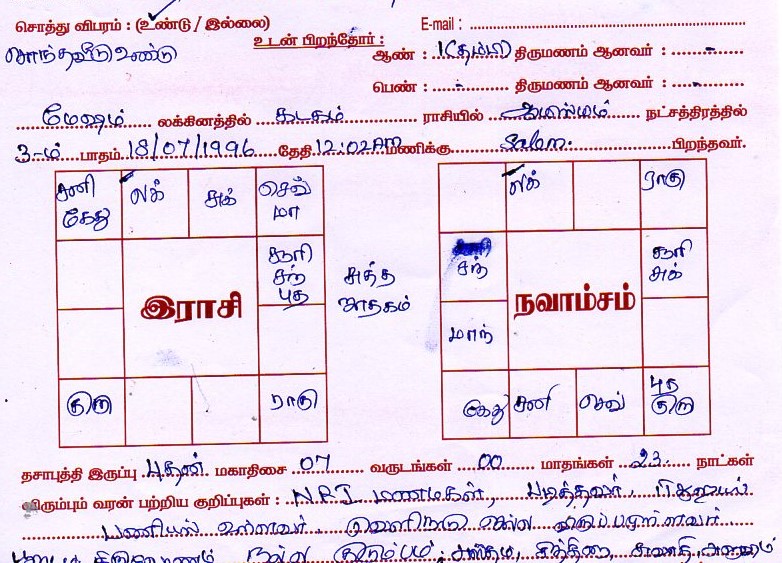 சொத்து விபரம் : (உண்டு / இல்லை) E-mail :
சொந்தவீடு உண்டு உடன் பிறந்தோர் : ஆண் : 1(தம்பி) திருமணம் ஆனவர் : -
பெண் : - திருமணம் ஆனவர் : -
மேஷம் லக்கினத்தில் கடகம் ராசியில் ஆயில்யம் நட்சத்திரத்தில்
3-ம் பாதம் 18/07/1996 தேதி 12:02AM மணிக்கு Salem பிறந்தவர்.
சனி கேது லக் சுக் செவ் மா
சூரி சந் புத
இராசி
குரு ராகு
சுத்த ஜாதகம்
லக் ராகு
சந் சூரி சுக்
நவாம்சம்
மாந்
கேது சனி செவ் புத குரு
தசாபுத்தி இருப்பு புதன் மகாதிசை 07 வருடங்கள் 00 மாதங்கள் 23 நாட்கள்
விரும்பும் வரன் பற்றிய குறிப்புகள் : NRI மணமகள், படித்தவர்
பணியில் உள்ளவர் வெளிநாடு செல்ல விருப்பமுள்ளவர்
நல்ல குடும்பம்